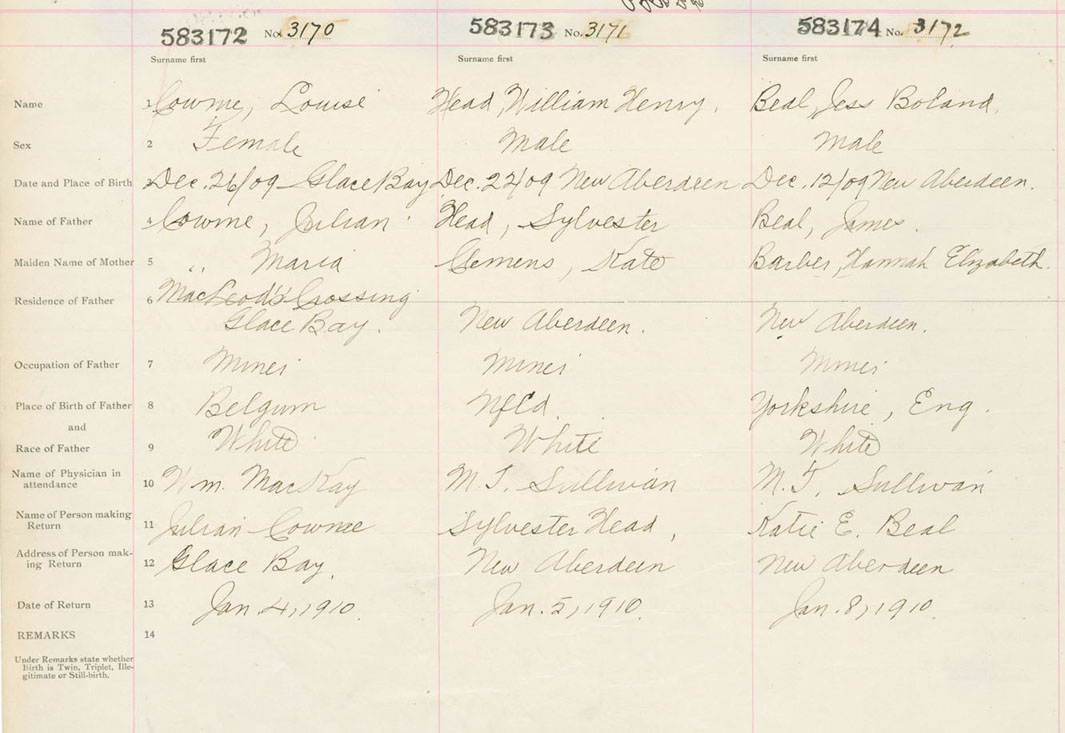 583172 No. 3170 583173 No. 3171 583174 No. 3172
Surname first Surname first Surname first
Name 1 Cowme, Louise Head, William Henry. Beal, Jess Boland.
Sex 2 Female Male Male
Date and Place of Birth 3 Dec. 26/09 Glace Bay Dec. 22/09 New Aberdeen Dec. 12/09 New Aberdeen.
Name of Father 4 Cowme, Julian Head, Sylvester Beal, James.
Maiden Name of Mother 5 " Maria Clemens, Kate Barber, Hannah Elizabeth.
Residence of Father 6 MacLeod's Crossing
Glace Bay. New Aberdeen. New Aberdeen.
Occupation of Father 7 Miner Miner Miner
Place of Birth of Father 8 Belgium Nfld. Yorkshire, Eng.
and
Race of Father 9 White White White
Name of Physician in
attendance 10 Wm. MacKay M. T. Sullivan M. T. Sullivan
Name of Person making
Return 11 Julian Cowme Sylvester Head, Katie E. Beal
Address of Person mak-
ing Return 12 Glace Bay. New Aberdeen New Aberdeen
Date of Return 13 Jan. 4, 1910. Jan. 5, 1910. Jan. 8, 1910.
REMARKS 14
Under Remarks state whether
Birth is Twin, Triplet, Ille-
gitimate or Still-birth.